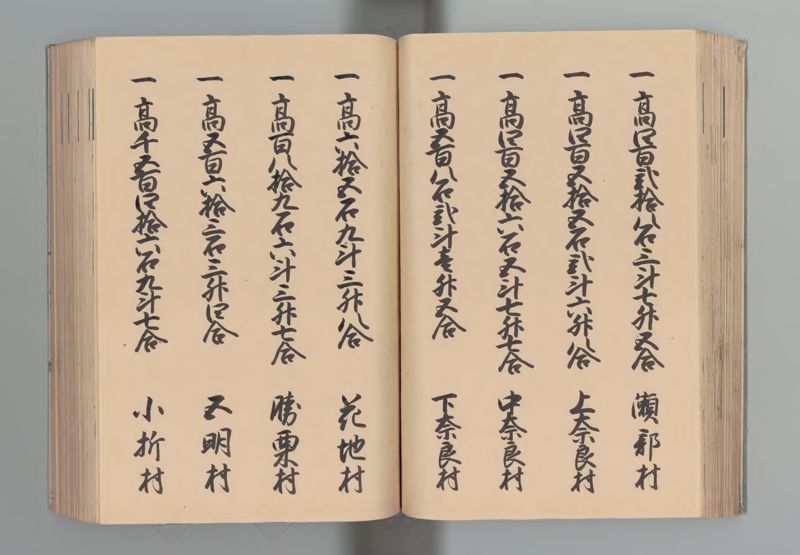 一高四百弐拾八石三斗七升五合 瀬部村
一高四百五拾五石弐斗六升八合 上奈良村
一高四百五拾六石五斗七升七合 中奈良村
一高五百八石弐斗壱升五合 下奈良村
一高六拾五石九斗三升八合 花地村
一高百八拾九石六斗三升七合 勝栗村
一高五百六拾三石三升四合 五明村
一高千五百四拾六石九斗七合 小折村